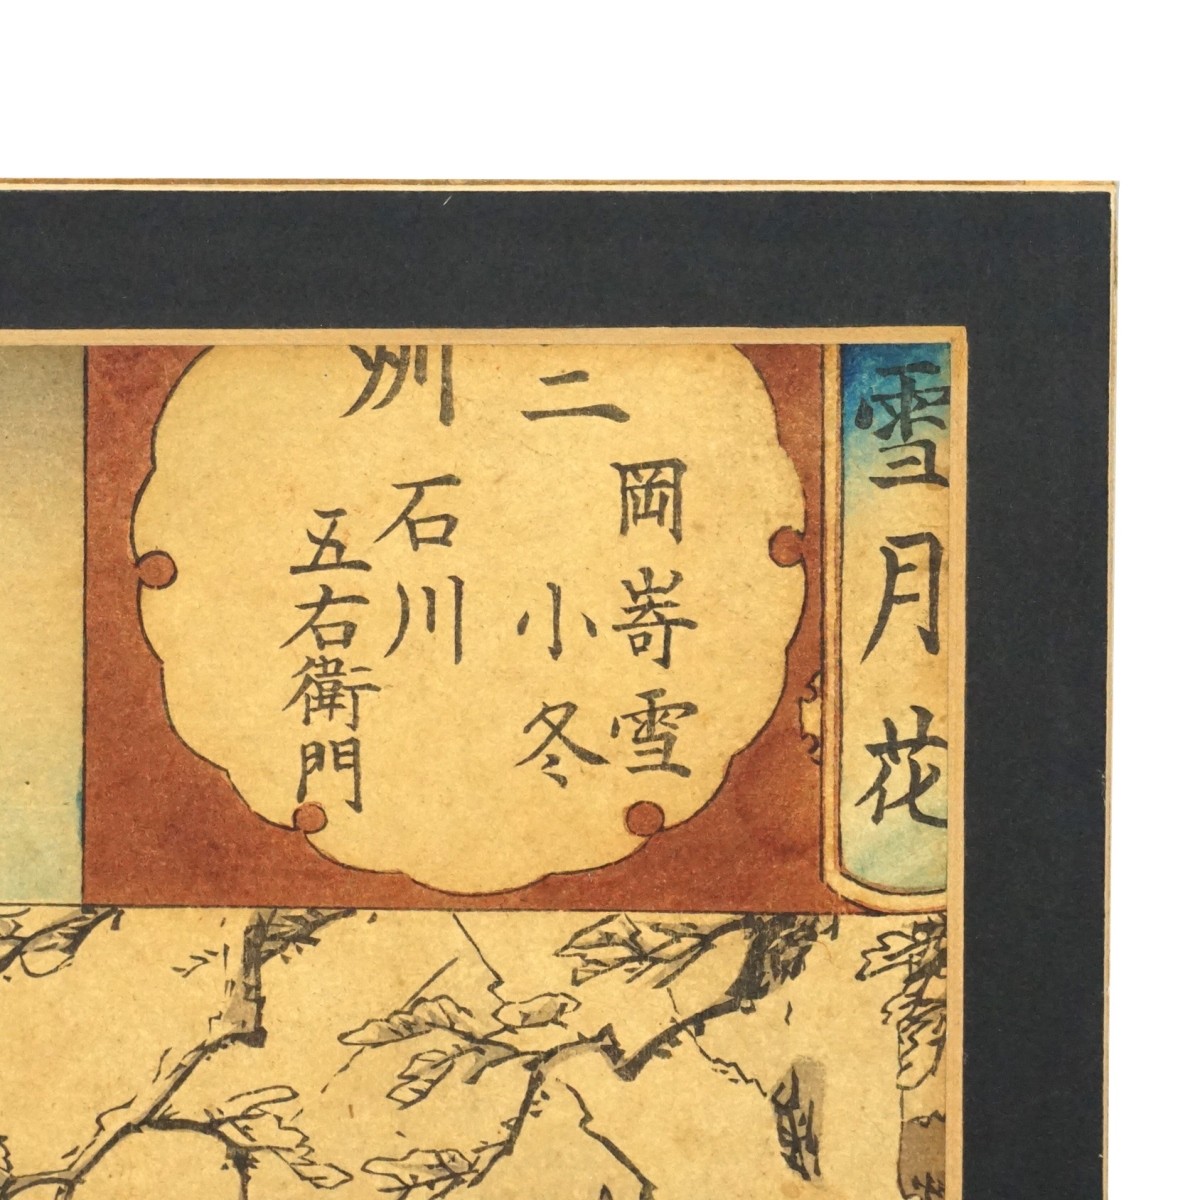 雪月花
岡嵜雪
二
小冬
州
石川
五右衛門